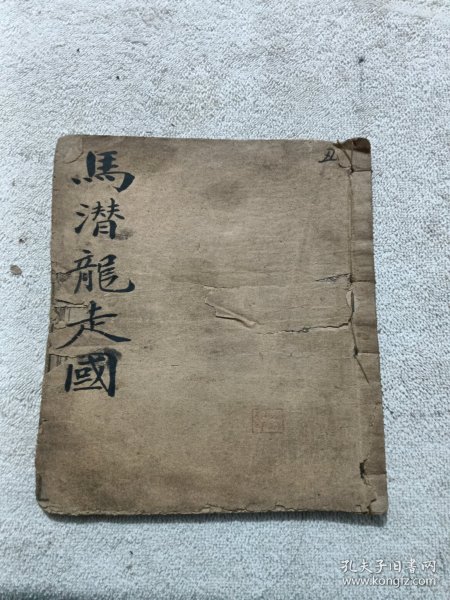 馬潜龍走國
丑
孔夫子旧书网
www.kongfz.com